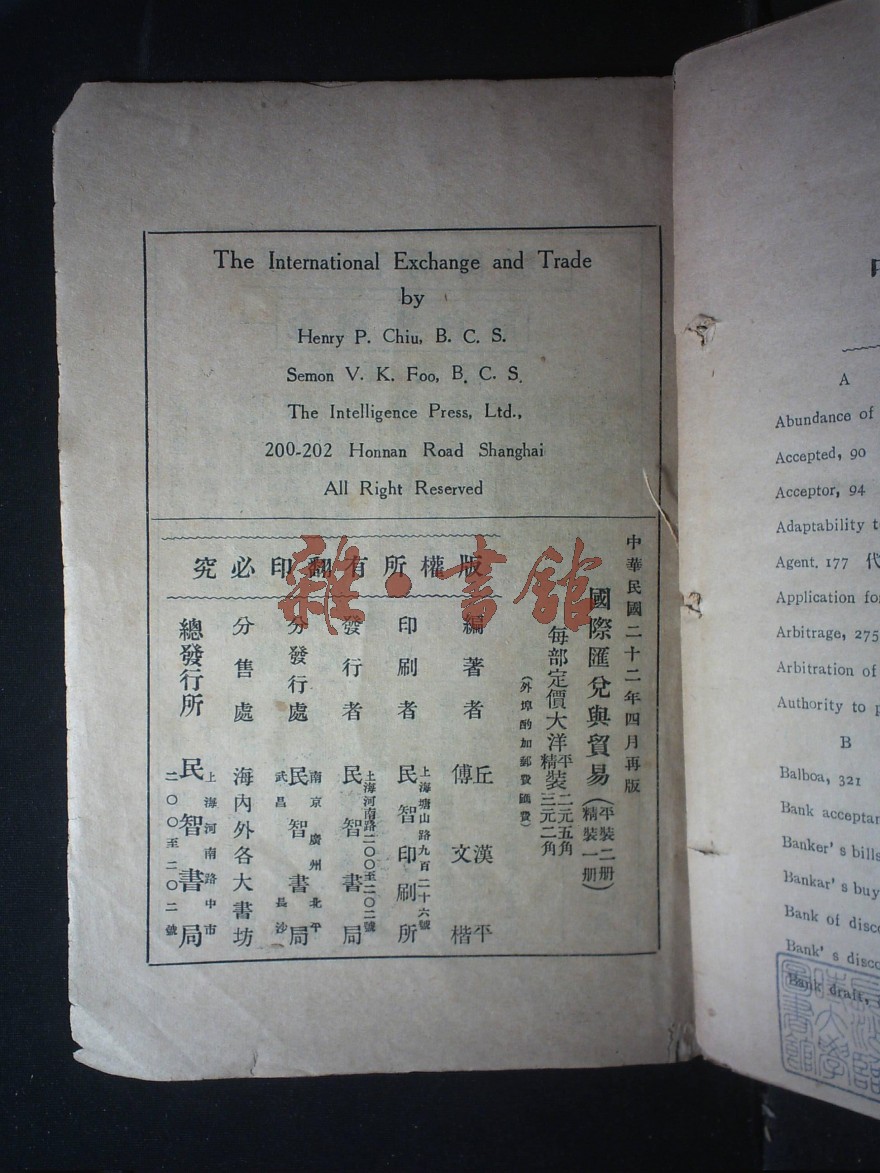 The International Exchange and Trade
by
Henry P. Chiu, B. C. S.
Semon V. K. Foo, B. C. S.
The Intelligence Press, Ltd.,
200-202 Honnan Road Shanghai
All Right Reserved
版權所有翻印必究
中華民國二十二年四月再版
國際匯兌與貿易
(平裝二册
精裝一册)
每部定價大洋
平裝二元五角
精裝三元二角
(外埠酌加郵費匯費)
編著者
丘漢平
傅文楷
印刷者
上海塘山路九百二十六號
民智印刷所
發行者
上海河南路二〇〇至二〇二號
民智書局
分發行處
南京廣州北平
民智書局
武昌長沙
分售處
海內外各大書坊
總發行所
上海河南路中市
民智書局
二〇〇至二〇二號
雜·書館
A
Abundance of
Accepted, 90
Acceptor, 94
Adaptability
Agent. 177
Application
Arbitrage, 275
Arbitration of
Authority to
B
Balboa, 321
Bank
Banker's bills
Bankar's buy
Bank of
Bank's
Bank draft,